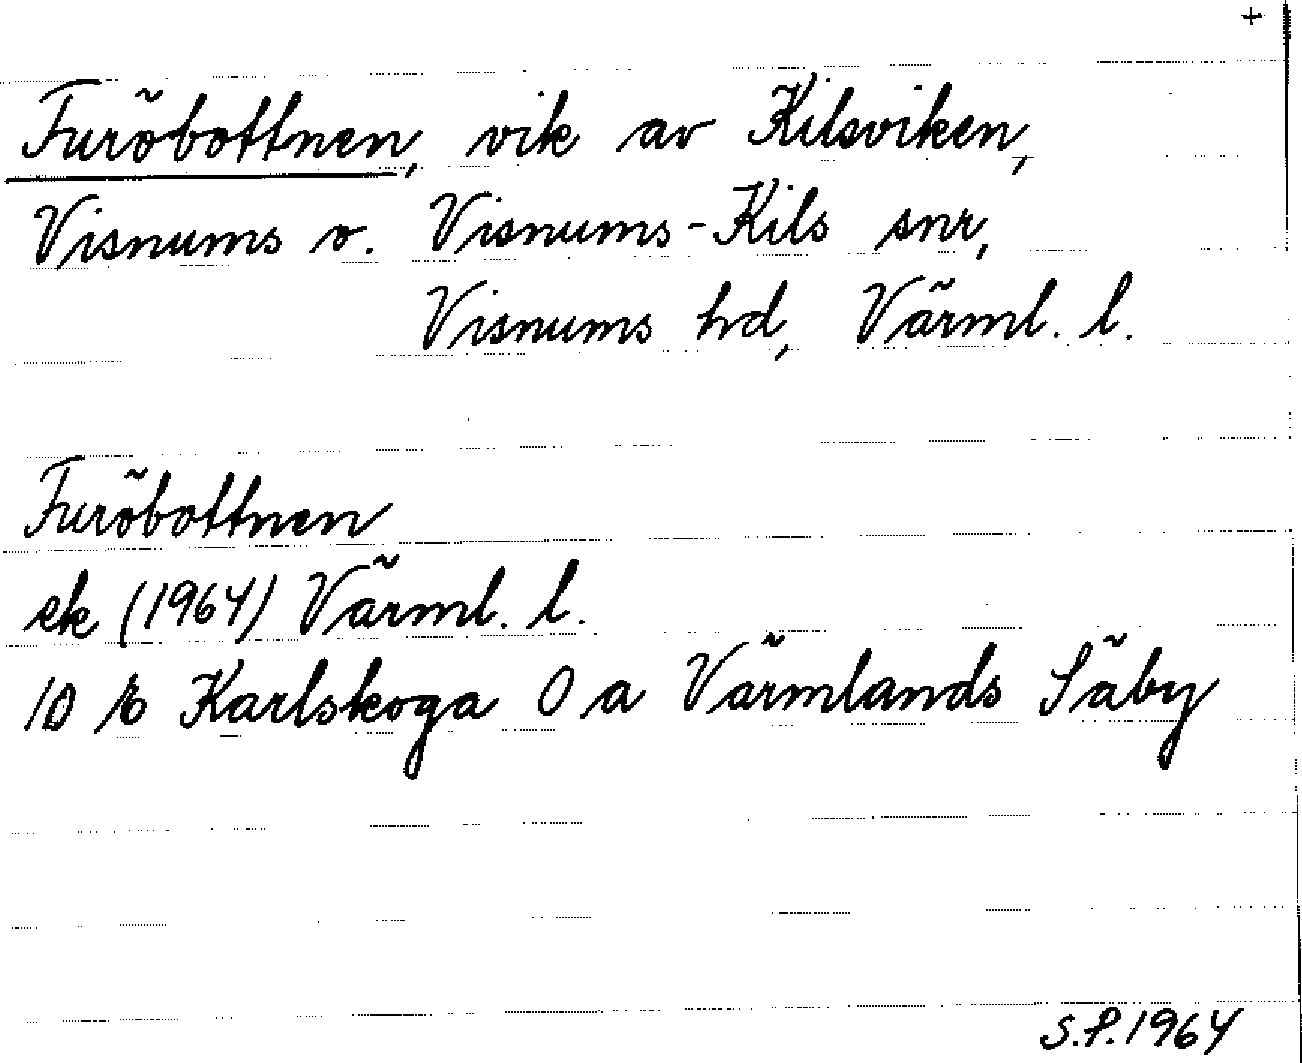 +
Furöbottnen, vik av Kilsviken,
Visnums o. Visnums-Kils snr,
Visnums hd, Värml. l.
Furöbottnen
ek (1964) Värml. l.
10 E Karlskoga 0 a Värmlands Säby
S.P. 1964